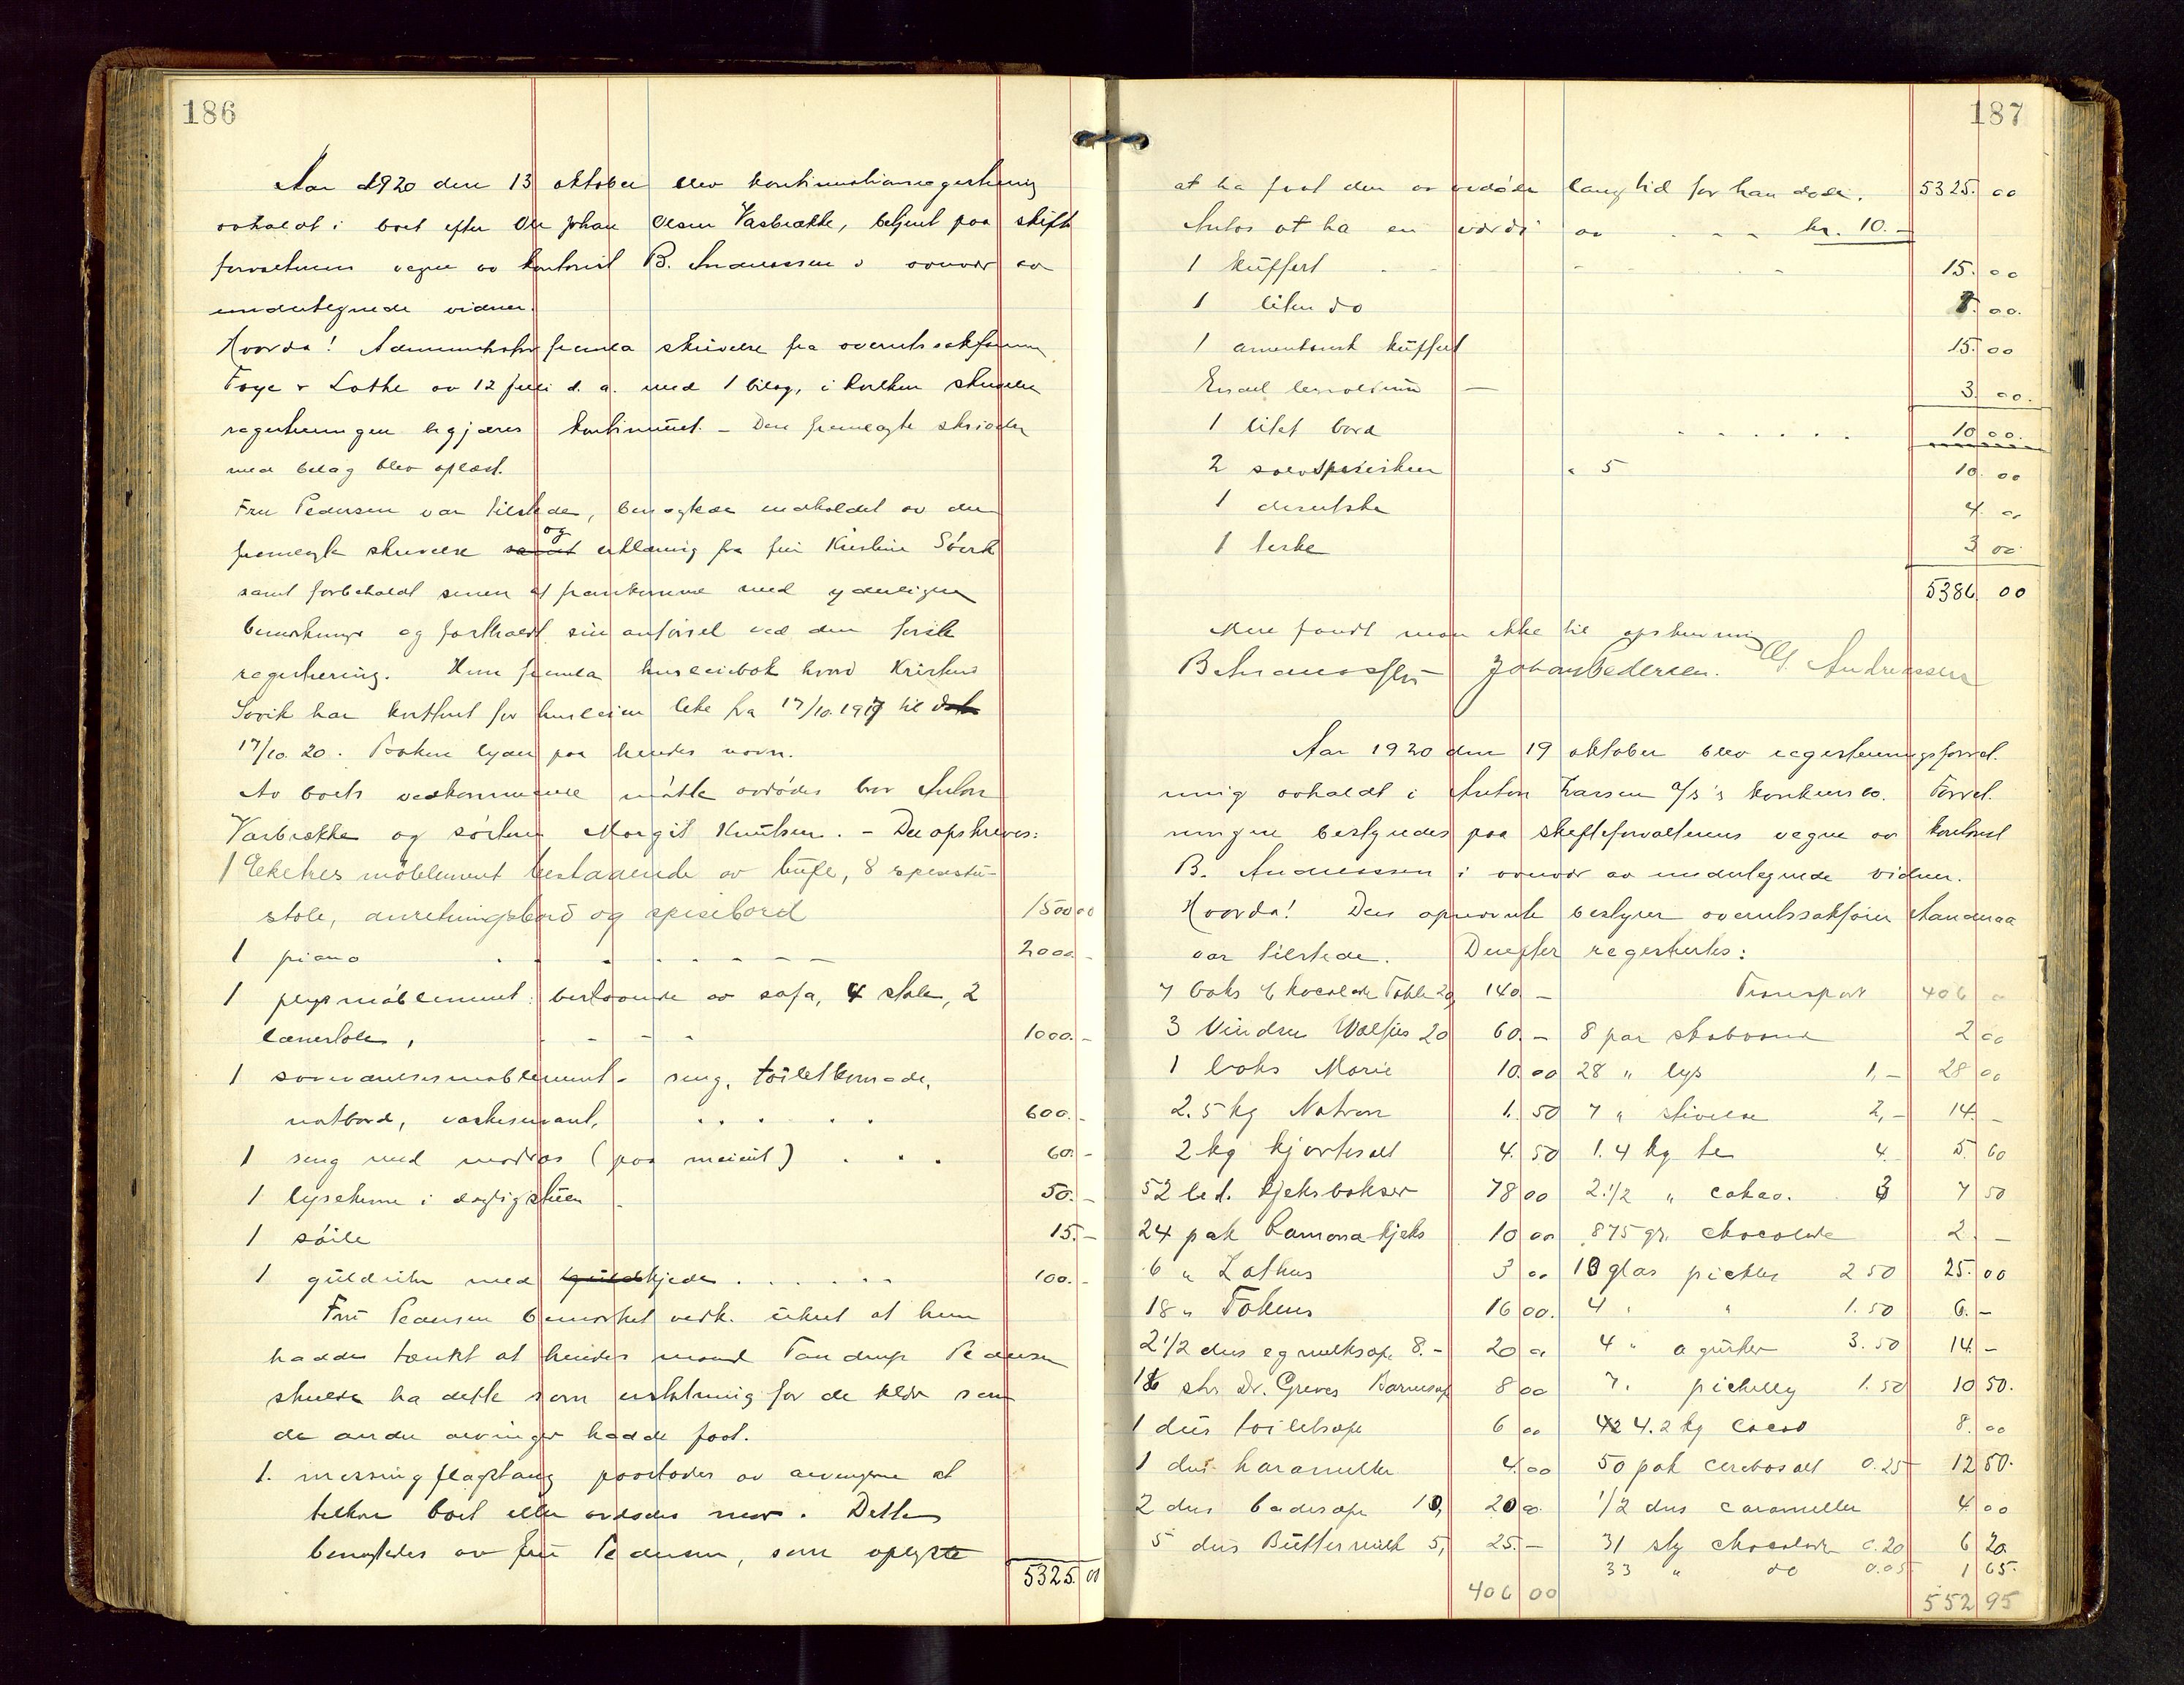 186
Aar 1920 den 13 oktober blev kontinuationsregistrering
avholdt i boet efter Ole Johan Olsen Vasbrække, betjent paa skifte
forvalterens vegne av kontorist B. Andreassen i overvær av
undertegnede vidner.
Hvorda! Administrator fremla skrivelse fra overretssakfører
Foye & Lothe av 12 juli d. a. med 1 bilag, i hvilken skrivelse
registreringen begjæres kontinuert. - Den fremlagte skrivelse
med bilag blev oplæst.
Fru Pedersen var tilstede, benegtede indholdet av den
fremlagte skrivelse samt og erklæring fra frk Kristine Søvik
samt forbeholdt senere at fremkomme med yderligere
bemerkninger og fastholdt sin anførsel ved den første
registrering. Hun fremla husleiebok hvor Kristine
Søvik har kvittert for husleien lete fra 17/10.1917 til dato
17/10. 20. Boken lyder paa hendes navn.
Av boets vedkommende møtte avdødes bror Anton
Vasbrække og søster Margit Knutsen. - Der opskreves:
1 Eketræs møblement bestaaende av bufe, 8 spisestu-
stole, anretningsbord og spisebord 1500 00
1 piano 2000. -
1 plysmøblement: bestaaende av sofa, 4 stole, 2
lænestole, 1000. -
1 soveværelsesmøblement - seng, toiletkomode,
natbord, vaskeservant, 600. -
1 seng med madras (paa mcient) 60. -
1 lysekrone i dagligstuen 50. -
1 søile 15. -
1 guldur med guldkjede 100. -
Fru Pedersen bemerket vedk. uhret at hun
hadde tænkt at hendes mand Tandrup Pedersen
skulde ha dette som erstatning for de klær som
de andre arvinger hadde faat.
1. messing flagstang paastodes av arvingerne at
tilhøre boet eller avdødes mor. Dette
benegtedes av fru Pedersen, som oplyste
5325. 00
187
at ha faat den av avdøde lang tid før han døde. 5325. 00
Antos at ha en værdi av kr. 10. -
1 kuffert 15. 00
1 liten do 8. 00.
1 amerikansk kuffert 15. 00
Endel 3. 00.
1 litet bord 10 00.
2 sølvspiseskeer a 5 10. 00
1 4. 00
1 teske 3 00
5386 00
Mere fandt man ikke til opskrivning
B Andreassen Johan Pedersen. G. Andreassen
Aar 1920 den 19 oktober blev registreringsforret-
ning avholdt i Anton Larsen A/S's konkursbo. Forret-
ningen bestyredes paa skifteforvalterens vegne av kontorist
B. Andreassen i overvær av undertegnede vidner.
Hvorda! Den opnævnte bestyrer overretssakfører Aandraa
var tilstede. Derefter registrertes:
7 boks Chocolade Table 20 140 -
3 Vindsen Wolfies 20 60. -
1 boks Marie 10. 00
2.5 kg Natron 1. 50
2 kg hjortesalt 4. 50
52 led. kjeksbokser 78 00
24 pak Ramona kjeks 10 00
6 " Lathus 3 00
18 " Tokens 16 00.
2 1/2 dus eg melksape 8. - 20 00
16 stk Dr. Greves Barnesape 8 00
1 dus toiletsape 6 00
1 dus karameller 4. 00
2 dus badesape 10, 20 00.
5 dus Buttermilk 5, 25. -
406 00
Transport 406 00
8 par skobaand 2 00
28 " lys 1, - 28 00
7 " stivelse 2, - 14. -
1.4 kg te 4. 5. 60
2 1/2 " cakao. 3 7 50
875 gr. chocolade 2. -
10 glas pickles 2 50 25. 00
4 " " 1. 50 6. -
4 " agurker 3. 50 14. -
7. pickelly 1. 50 10 50.
42 4.2 kg cacao 8. 00
50 pak cerebosalt 0. 25 12 50.
1/2 dus carameller 4 00
31 sty chocolade 0. 20 6 20.
33 " do 0.05 1 65.
552 95